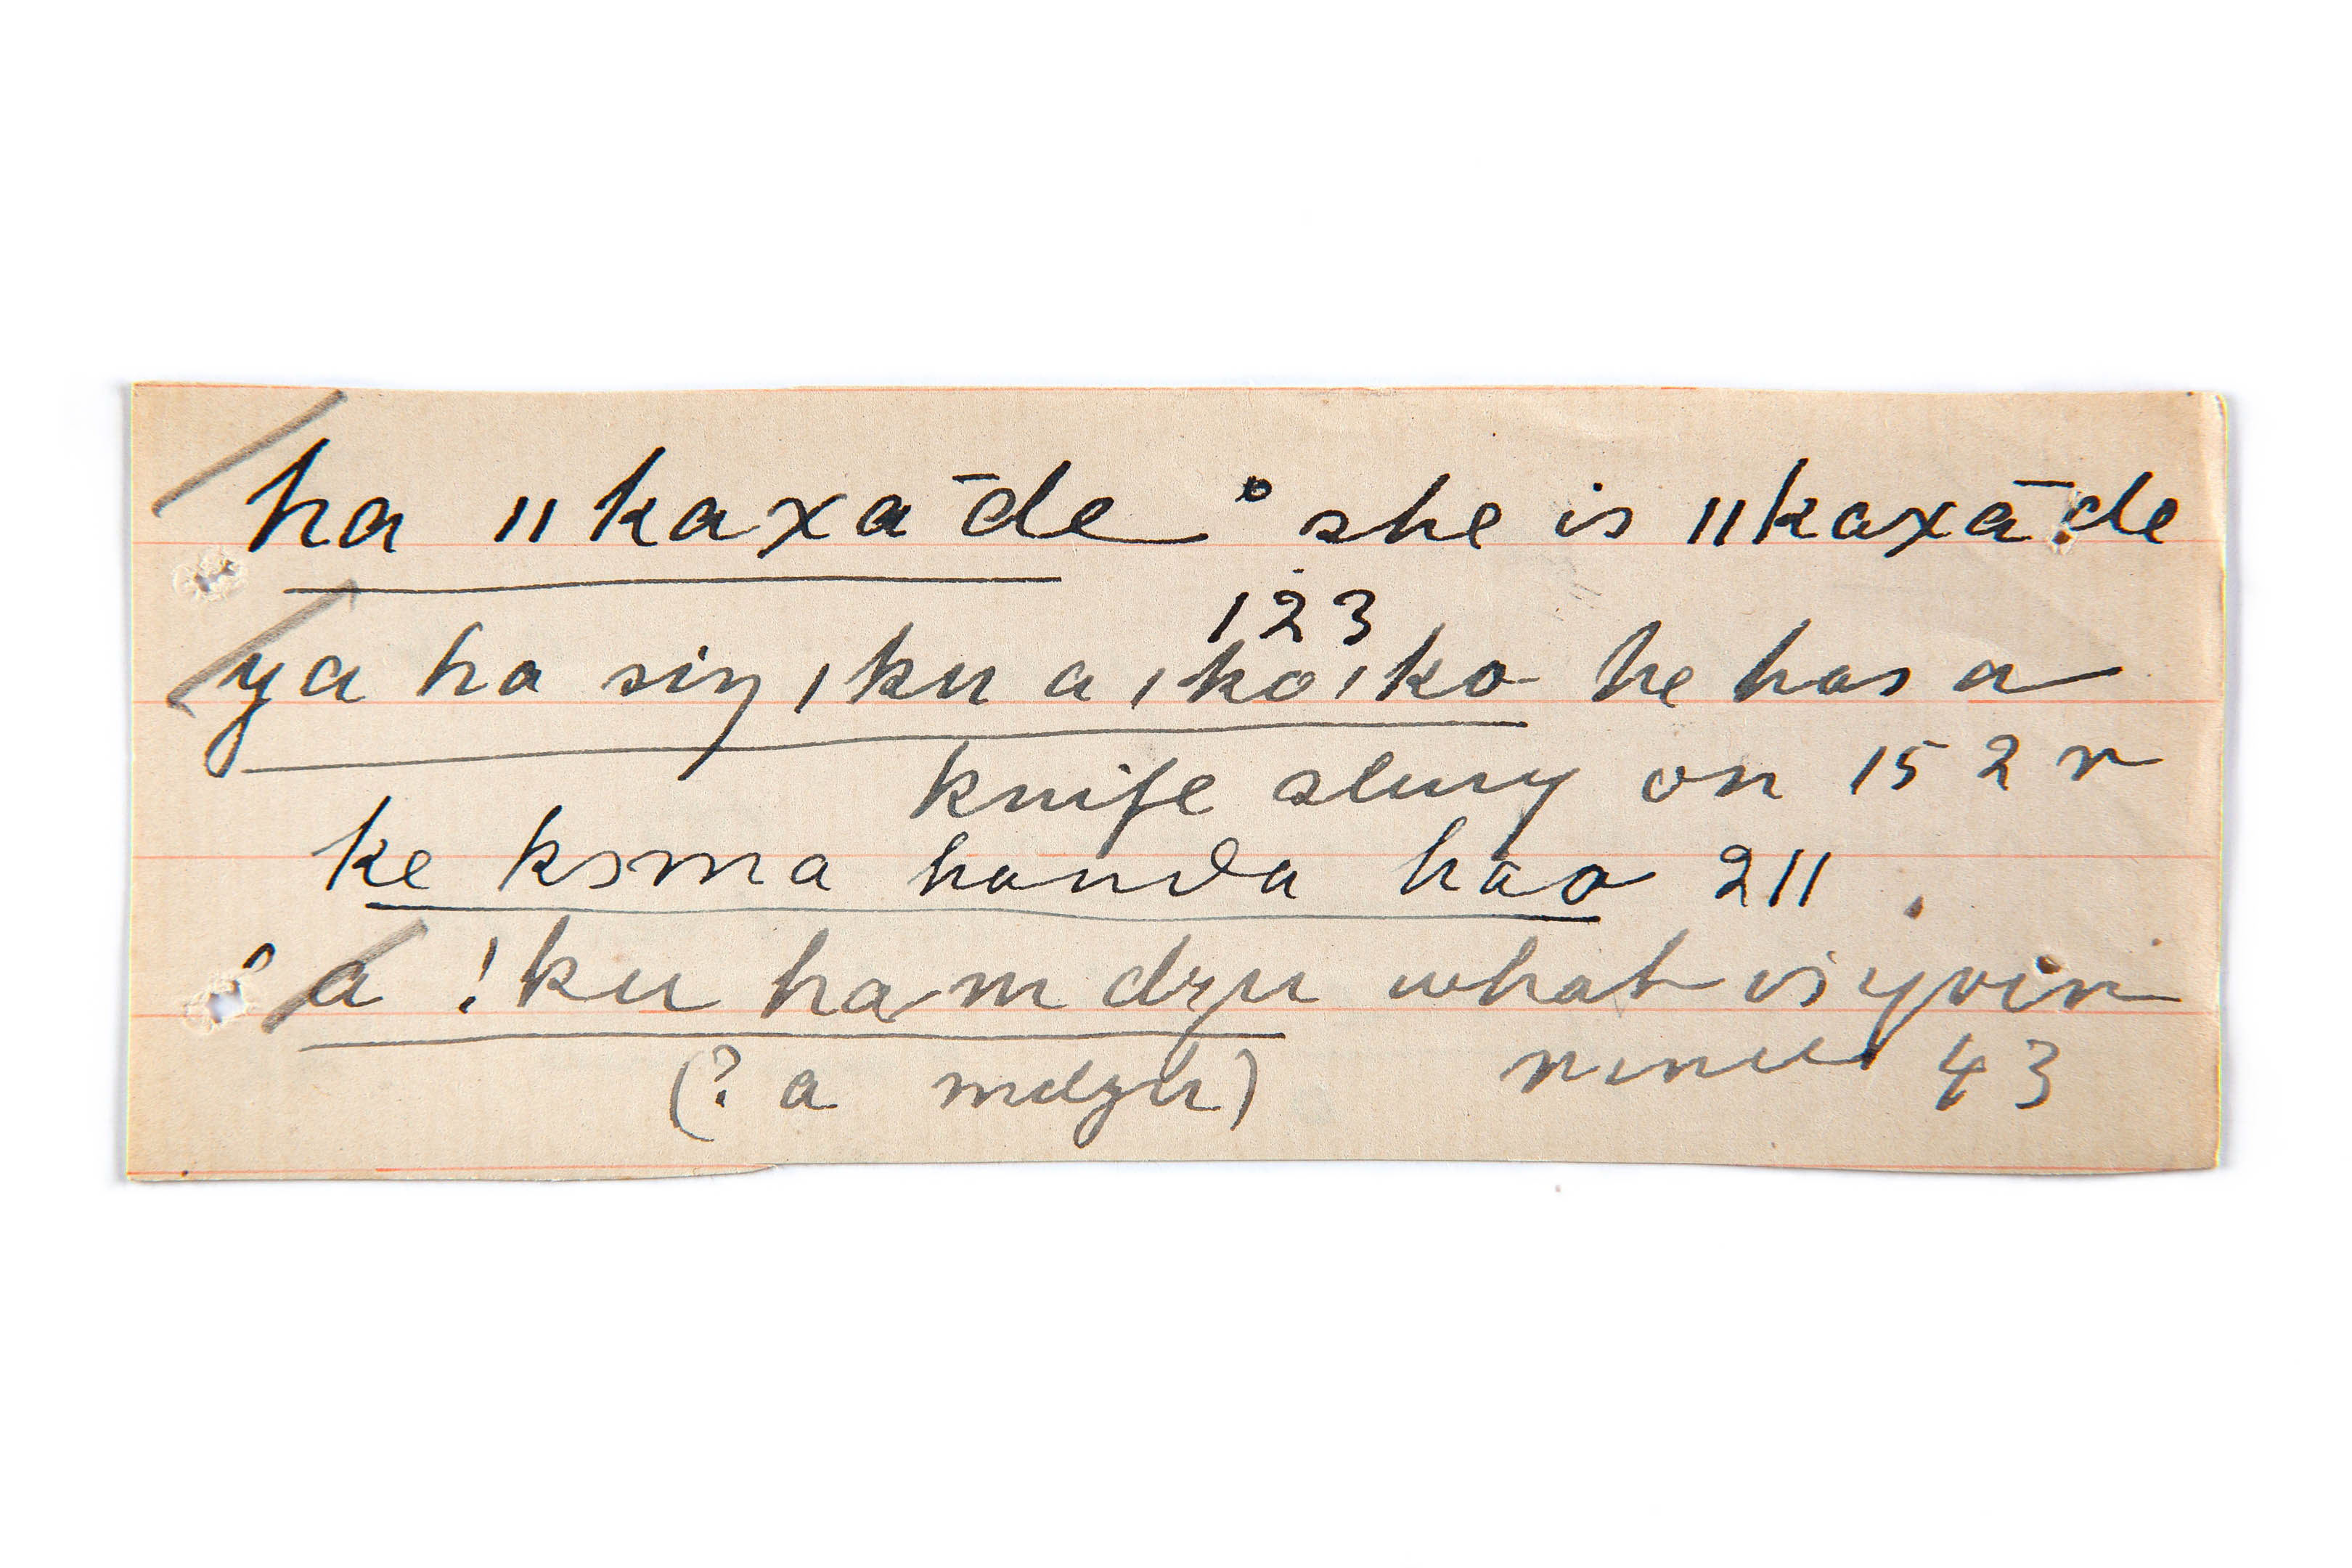 ha ǁkaxā̄de she is ǁkaxā̄de
123
ya ha siŋ ǀku a ǀkoǀko he has a
knife slung on 152 r
ke ksma handa hao 211
a !ku ham dzu what is yrin
(? a mdzu) nunu 43